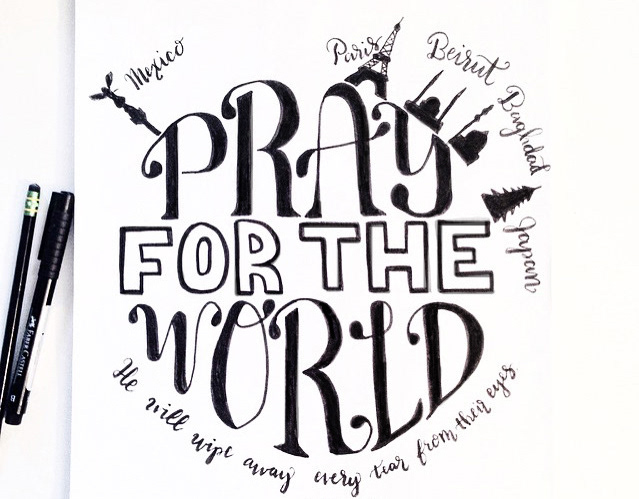 Mexico
Paris
Beirut
Baghdad
Japan
PRAY
FOR THE
WORLD
He will wipe away every tear from their eyes
FABER-CASTELL